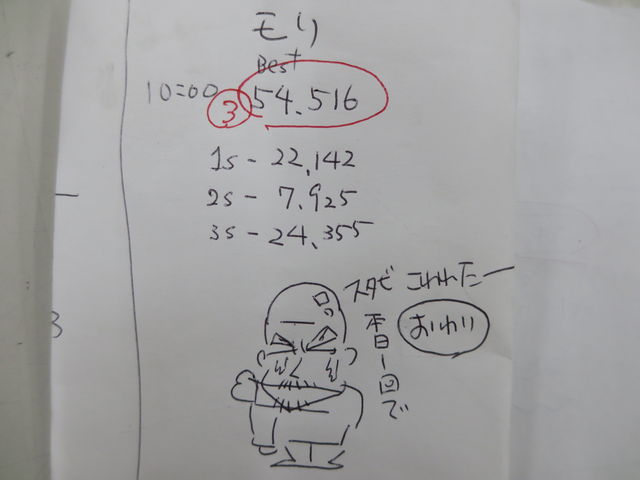 モリ
Best
10=00 ③ 54.516
1s - 22.142
2s - 7.925
3s - 24.355
スタビ こわれたー
本日1回で
おわり
3